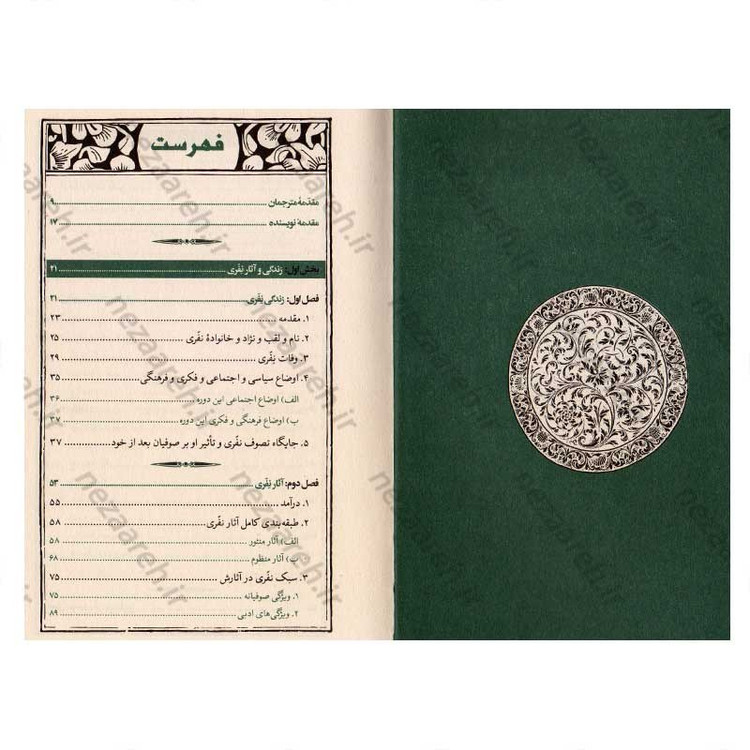 فهرست
مقدمهٔ مترجمان ........ ۹
مقدمهٔ نویسنده ........ ۱۷
بخش اول: زندگی و آثار نِفّری ........ ۲۱
فصل اول: زندگی نِفّری ........ ۲۱
۱. مقدمه ........ ۲۳
۲. نام و لقب و نژاد و خانوادهٔ نفّری ........ ۲۵
۳. وفات نِفّری ........ ۲۹
۴. اوضاع سیاسی و اجتماعی و فکری و فرهنگی ........ ۳۵
الف) اوضاع اجتماعی این دوره ........ ۳۶
ب) اوضاع فرهنگی و فکری این دوره ........ ۳۷
۵. جایگاه تصوف نفّری و تأثیر او بر صوفیان بعد از خود ........ ۳۷
فصل دوم: آثار نِفّری ........ ۵۳
۱. درآمد ........ ۵۵
۲. طبقه‌بندی کامل آثار نفّری ........ ۵۸
الف) آثار منثور ........ ۵۸
ب) آثار منظوم ........ ۶۸
۳. سبک نفّری در آثارش ........ ۷۵
۱. ویژگی صوفیانه ........ ۷۵
۲. ویژگی‌های ادبی ........ ۸۹
nezaareh.ir